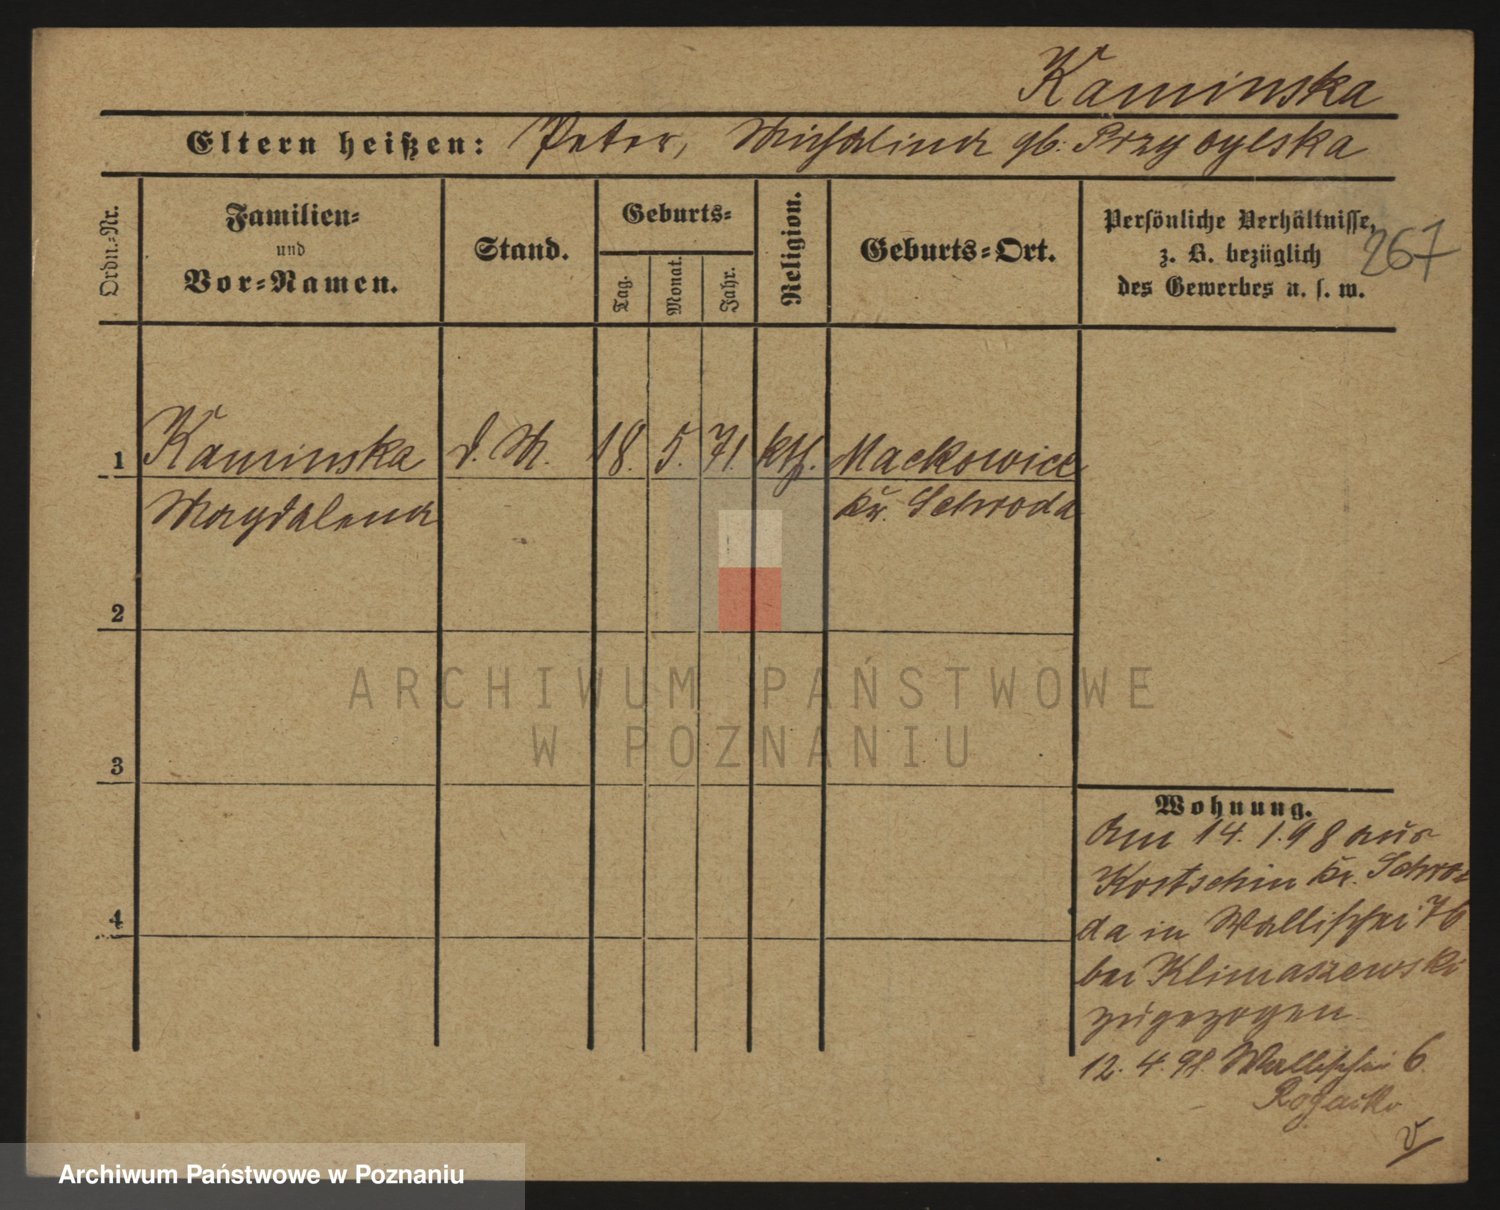 Kaminska
Eltern heißen: Peter, Michalina gb: Przybylska
Ordn.=Nr.
Familien=
und
Vor=Namen.
Stand.
Geburts=
Tag.
Monat.
Jahr.
Religion.
Geburts=Ort.
Persönliche Verhältnisse,
z. B. bezüglich
des Gewerbes u. s. w.
267
1 Kaminska d. M. 18. 5. 71. kth. Mackowice
Magdalena Kr. Schroda
2
3
4
ARCHIWUM PAŃSTWOWE
W POZNANIU
Wohnung.
Am 14. 1. 98 aus
Kostschin Kr. Schro=
da in Wallischei 76
bei Klimaszewski
zugezogen.
12. 4. 98. Wallischei 6
Archiwum Państwowe w Poznaniu